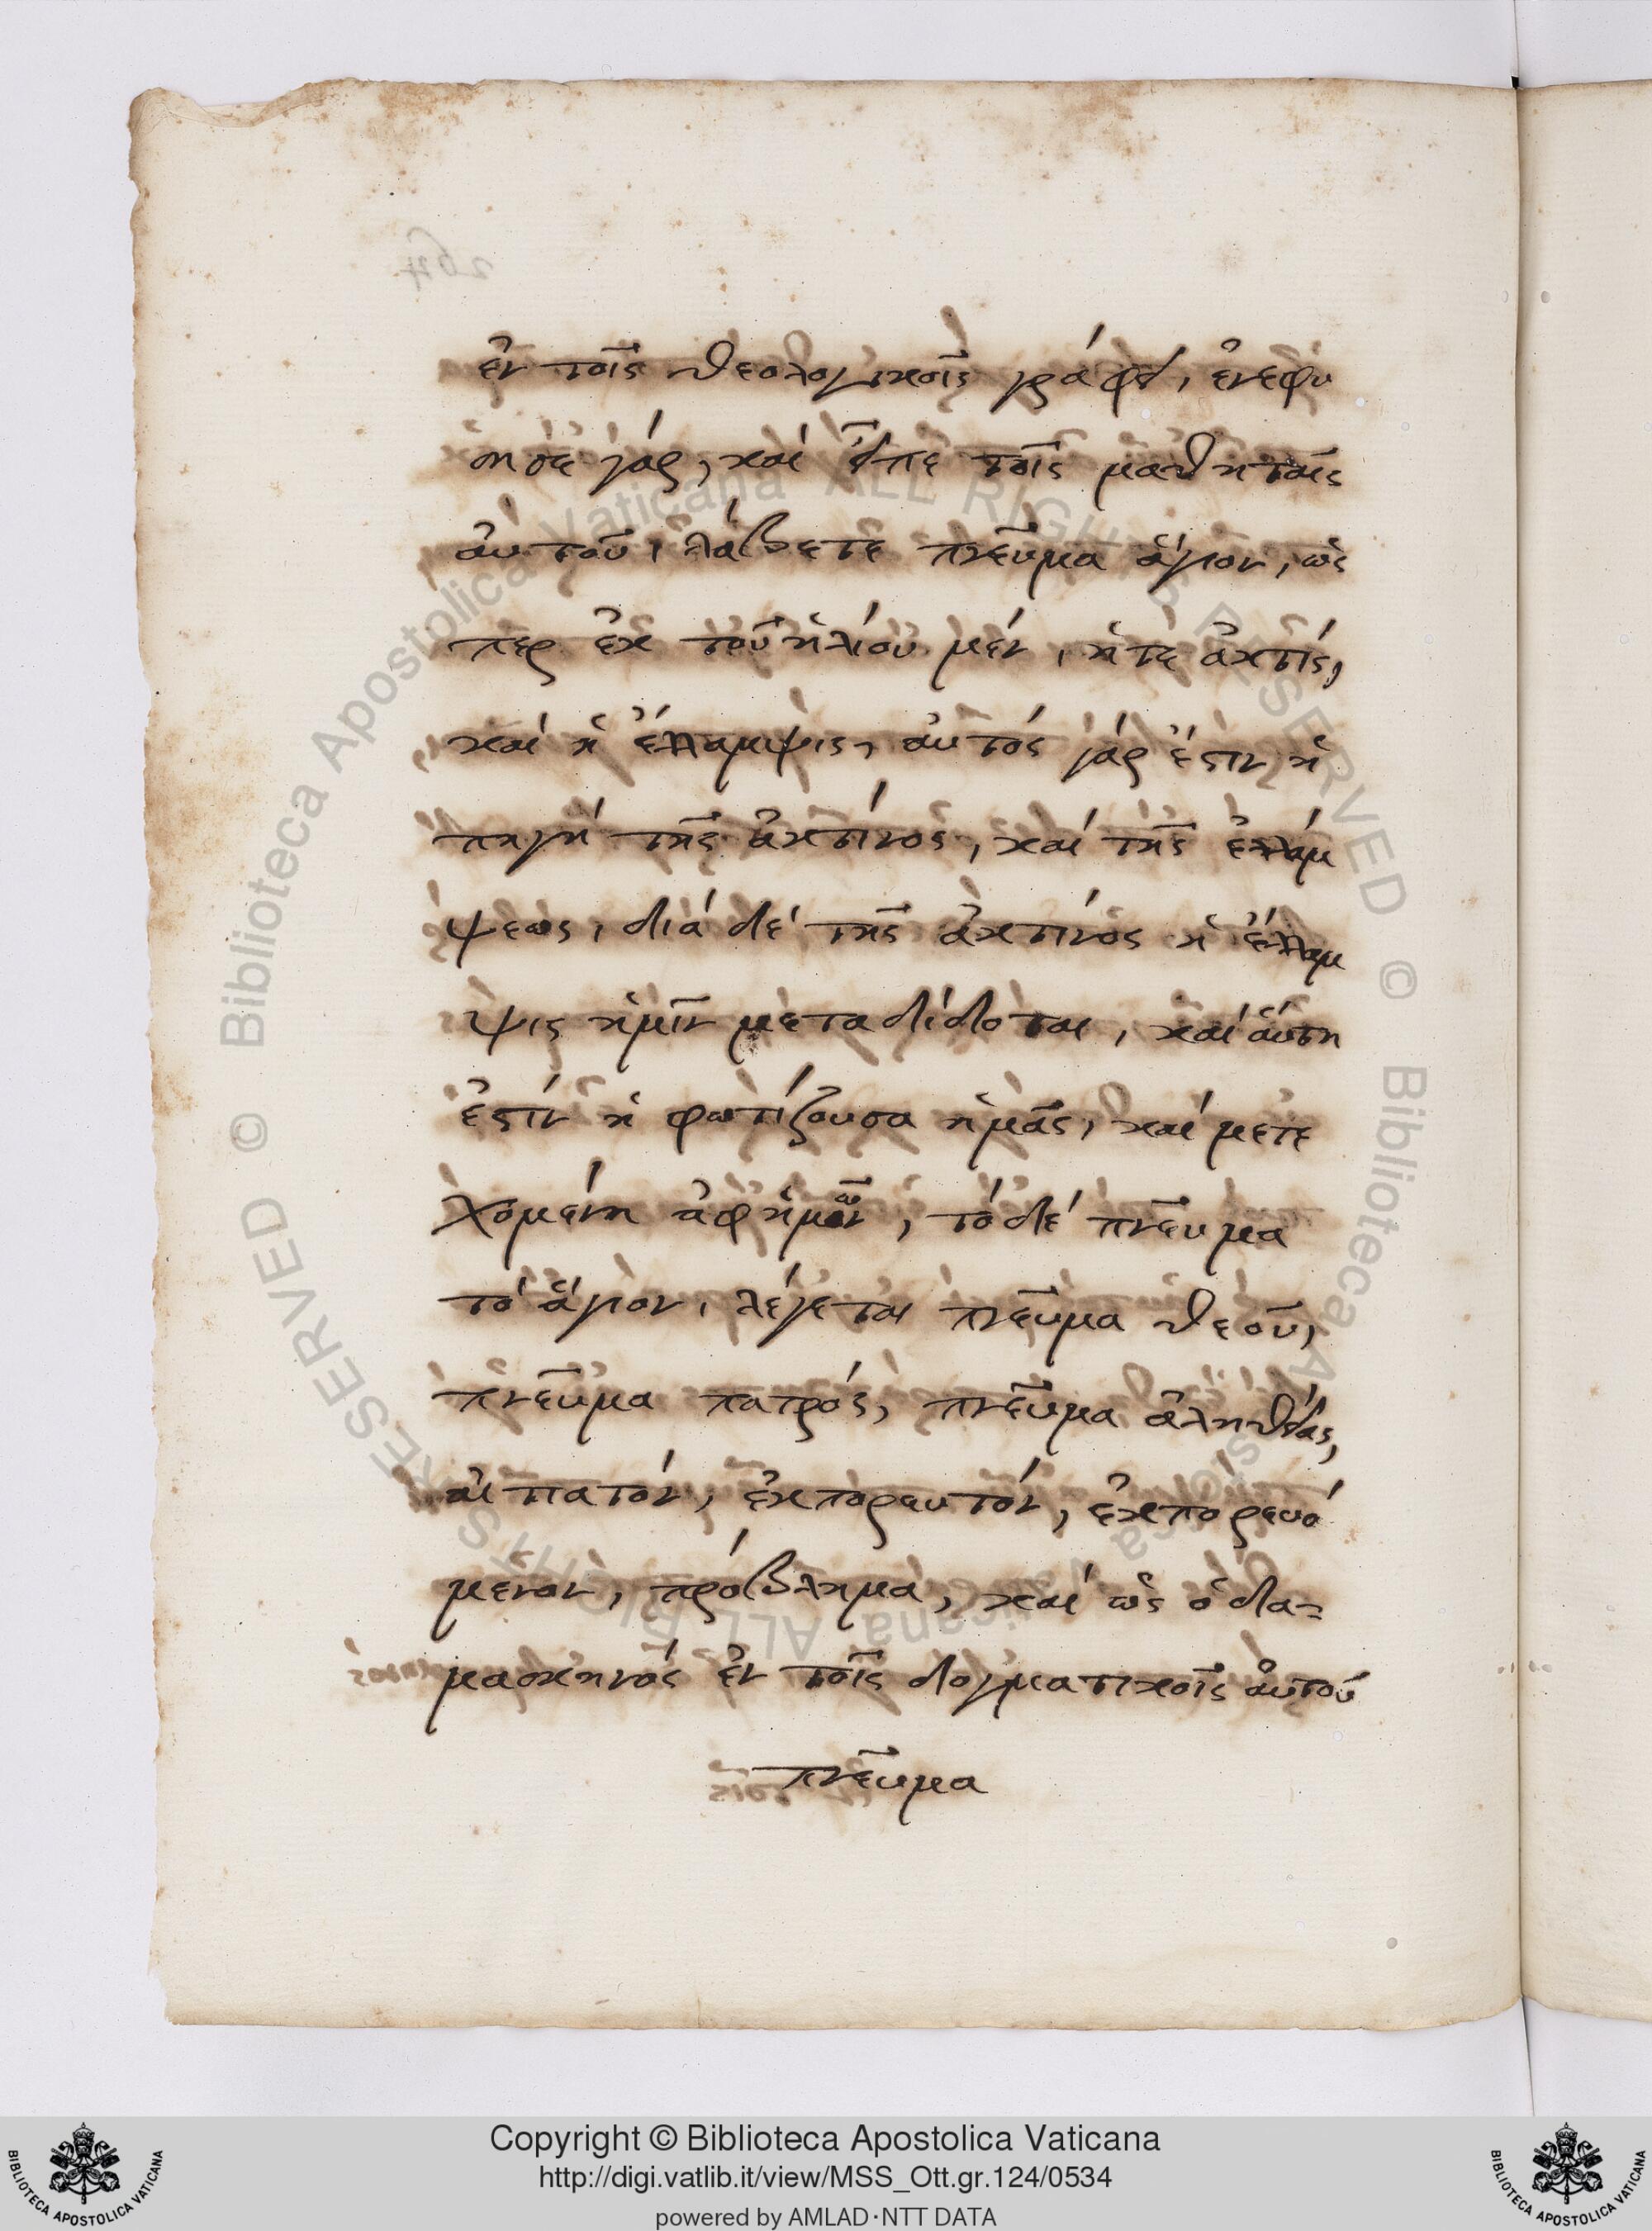 ἐν τοῖς θεολογικοῖς γράφει, ἐνεφύ
σησε γάρ, καί εἶπε τοῖς μαθηταῖς
αὐτοῦ, λάβετε πνεῦμα ἅγιον, ὡς
περ ἐκ τοῦ ἡλίου μέν, ἥτε ἀκτίς,
καί ἡ ἔλλαμψις, αὐτός γάρ ἐστιν ἡ
πηγή τῆς ἀκτίνος, καί τῆς ἐλλάμ
ψεως, διά δέ τῆς ἀκτίνος ἡ ἔλλαμ
ψις ἡμῖν μεταδίδοται, καί αὕτη
ἐστίν ἡ φωτίζουσα ἡμᾶς, καί μετε
χομένη ἀφ ἡμῶν, τό δέ πνεῦμα
τό ἅγιον, λέγεται πνεῦμα θεοῦ,
πνεῦμα πατρός, πνεῦμα ἀληθείας,
αἰτιατόν, ἐκπορευτόν, ἐκπορευό
μενον, πρόβλημα, καί ὡς ὁ δα=
μασκηνός ἐν τοῖς δογματικοῖς αὐτοῦ
πνεῦμα
Copyright © Biblioteca Apostolica Vaticana
http://digi.vatlib.it/view/MSS_Ott.gr.124/0534
powered by AMLAD·NTT DATA
BIBLIOTECA APOSTOLICA VATICANA
BIBLIOTECA APOSTOLICA VATICANA
© Biblioteca Apostolica Vaticana ALL RIGHTS RESERVED
© Biblioteca Apostolica Vaticana ALL RIGHTS RESERVED